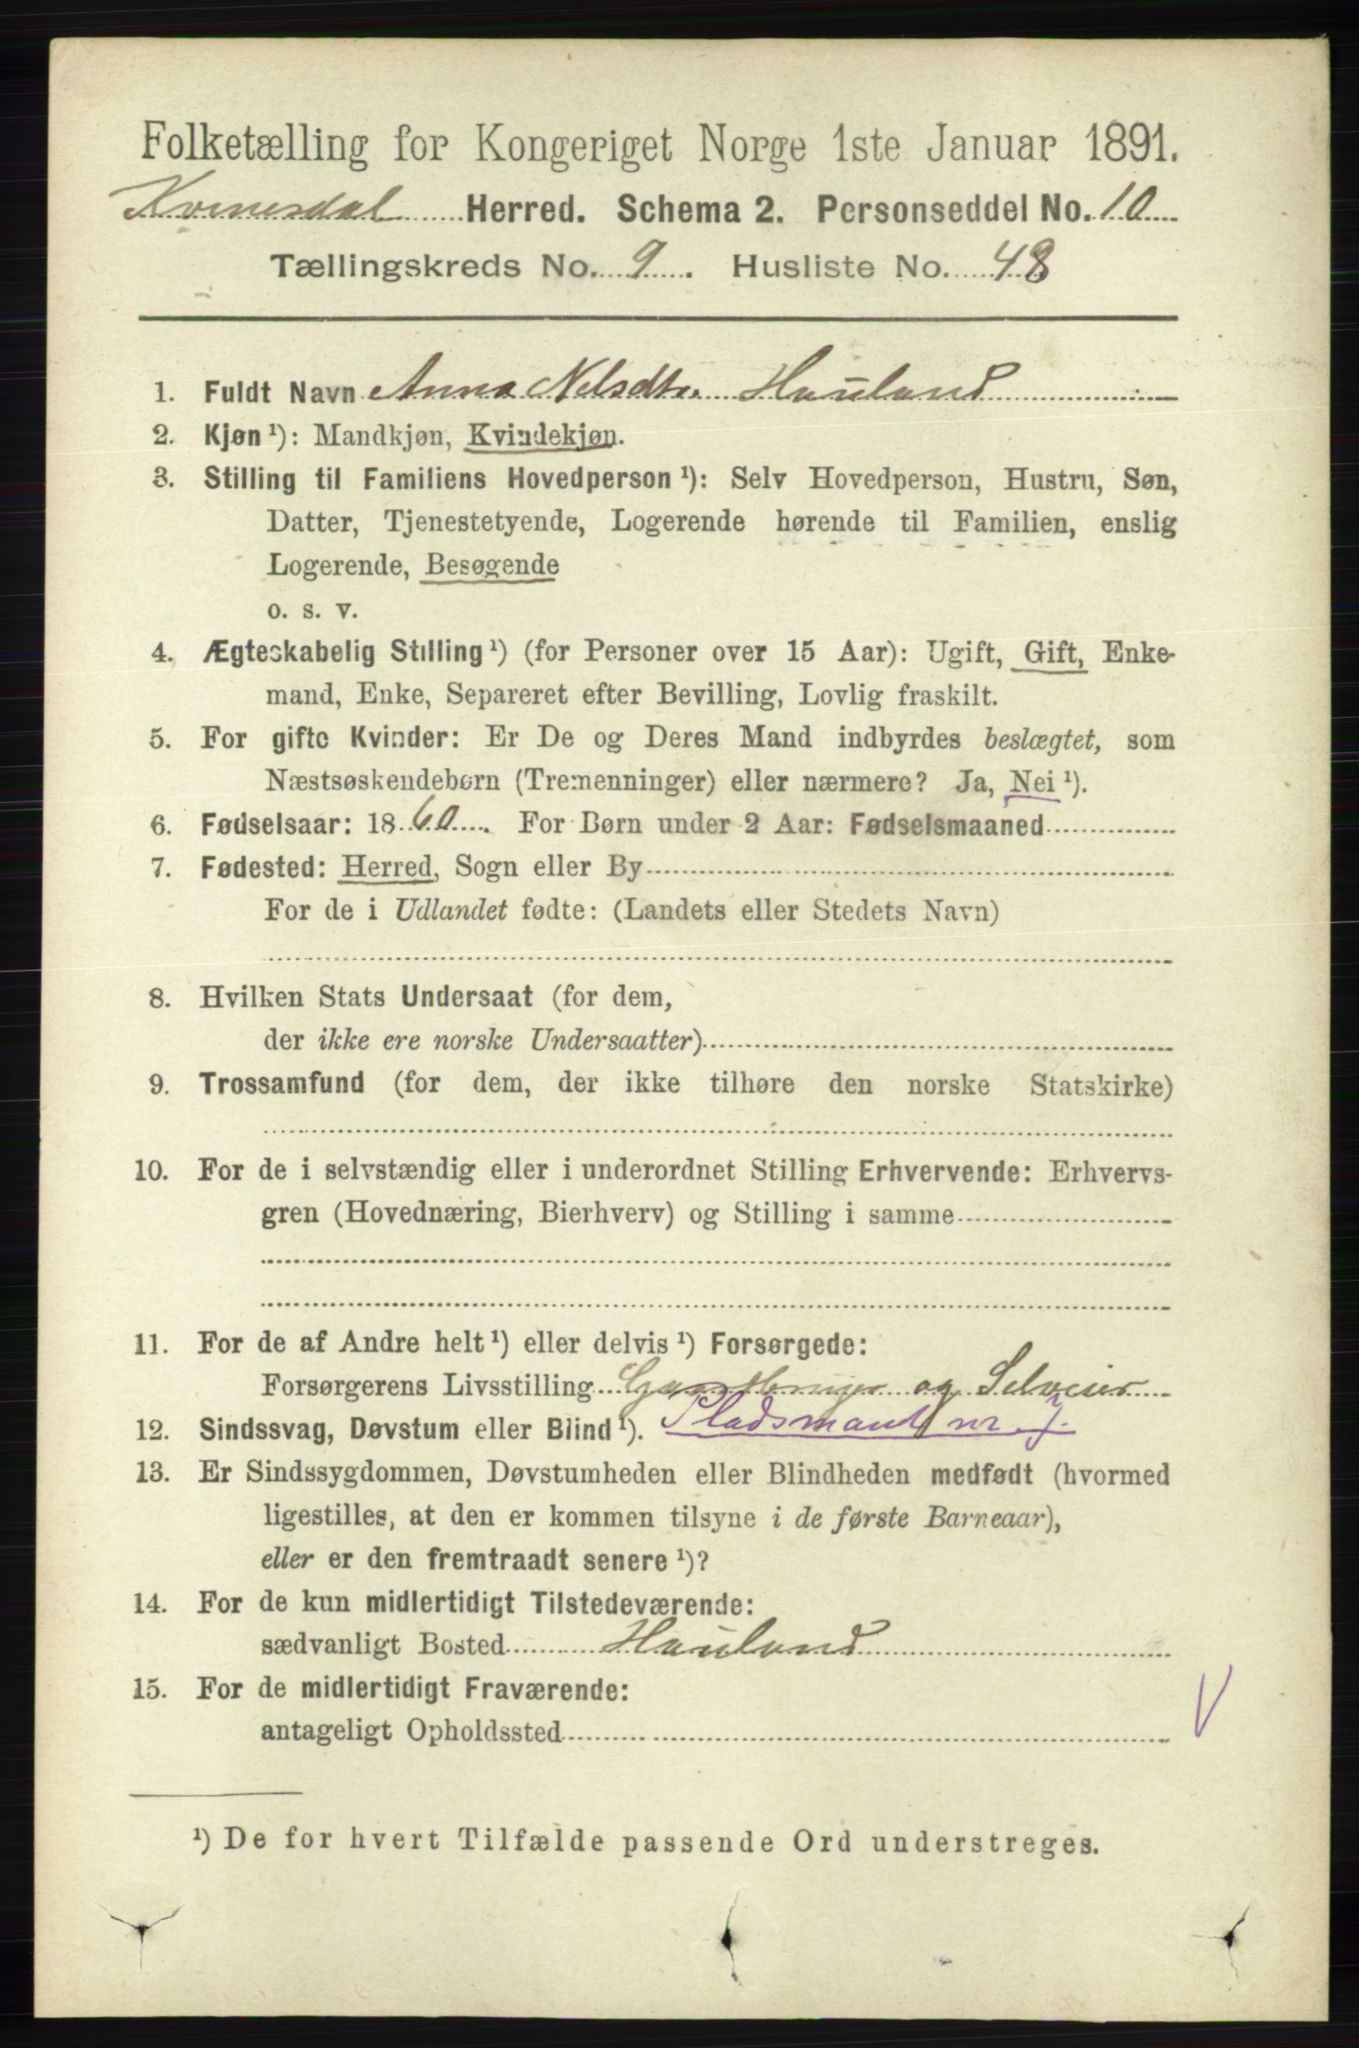 Folketælling for Kongeriget Norge 1ste Januar 1891.
Kvinesdal Herred. Schema 2. Personseddel No. 10
Tællingskreds No. 9. Husliste No. 48
1. Fuldt Navn Anna Nelsdtr. Hauland
2. Kjøn ¹): Mandkjøn, Kvindekjøn.
3. Stilling til Familiens Hovedperson ¹): Selv Hovedperson, Hustru, Søn,
Datter, Tjenestetyende, Logerende hørende til Familien, enslig
Logerende, Besøgende
o. s. v.
4. Ægteskabelig Stilling ¹) (for Personer over 15 Aar): Ugift, Gift, Enke-
mand, Enke, Separeret efter Bevilling, Lovlig fraskilt.
5. For gifte Kvinder: Er De og Deres Mand indbyrdes beslægtet, som
Næstsøskendebørn (Tremenninger) eller nærmere? Ja, Nei ¹).
6. Fødselsaar: 1860. For Børn under 2 Aar: Fødselsmaaned
7. Fødested: Herred, Sogn eller By
For de i Udlandet fødte: (Landets eller Stedets Navn)
8. Hvilken Stats Undersaat (for dem,
der ikke ere norske Undersaatter)
9. Trossamfund (for dem, der ikke tilhøre den norske Statskirke)
10. For de i selvstændig eller i underordnet Stilling Erhvervende: Erhvervs-
gren (Hovednæring, Bierhverv) og Stilling i samme
11. For de af Andre helt ¹) eller delvis ¹) Forsørgede:
Forsørgerens Livsstilling Gaardbruger og Selveier
12. Sindssvag, Døvstum eller Blind ¹). Pladsmand nr. 7.
13. Er Sindssygdommen, Døvstumheden eller Blindheden medfødt (hvormed
ligestilles, at den er kommen tilsyne i de første Barneaar),
eller er den fremtraadt senere ¹)?
14. For de kun midlertidigt Tilstedeværende:
sædvanligt Bosted Hauland
15. For de midlertidigt Fraværende:
antageligt Opholdssted
¹) De for hvert Tilfælde passende Ord understreges.